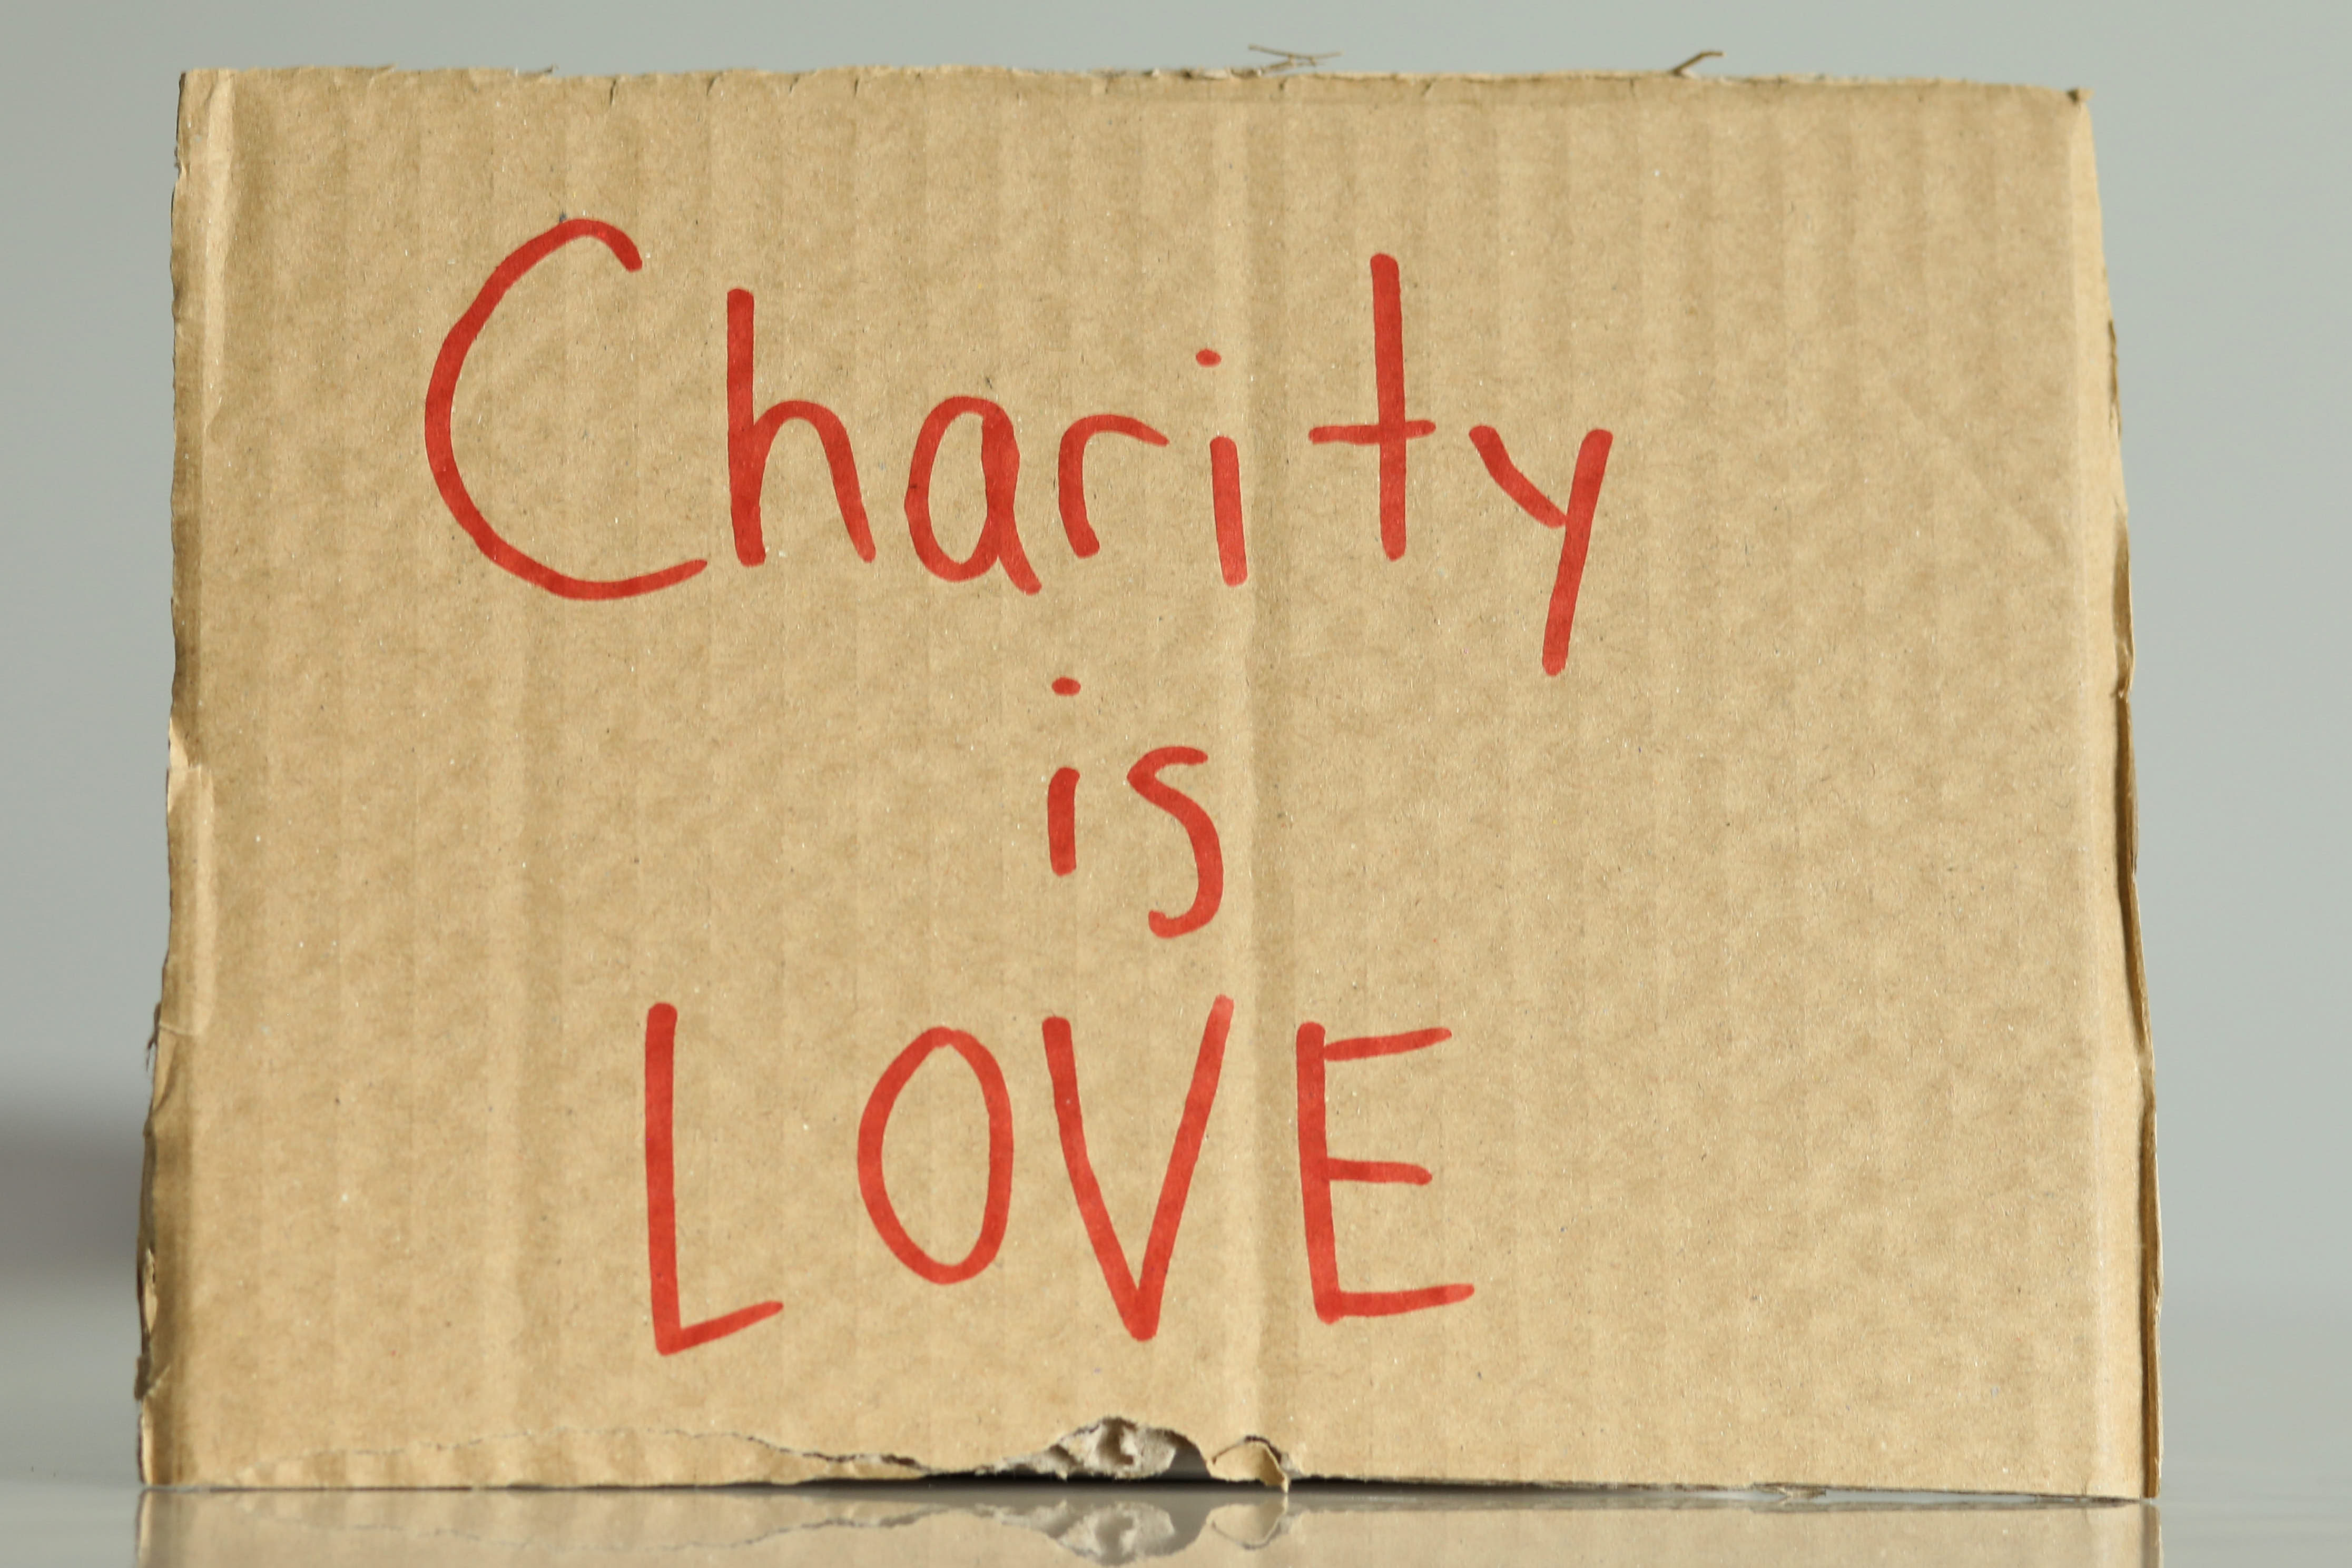 Charity
is
LOVE